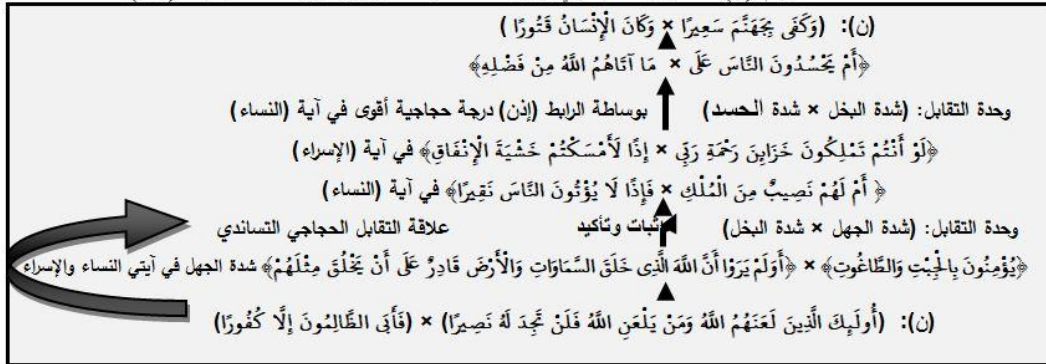 (ن): (وَكَفَى بِجَهَنَّمَ سَعِيرًا × وَكَانَ الْإِنْسَانُ قَتُورًا )
﴿أَمْ يَحْسُدُونَ النَّاسَ عَلَى × مَا آتَاهُمُ اللَّهُ مِنْ فَضْلِهِ﴾
وحدة التقابل: (شدة البخل × شدة الحسد) بوساطة الرابط (إذن) درجة حجاجية أقوى في آية (النساء)
﴿لَوْ أَنْتُمْ تَمْلِكُونَ خَزَايِنَ رَحْمَةِ رَبِّي × إِذًا لَأَمْسَكْتُمْ خَشْيَةَ الْإِنْفَاقِ﴾ في آية (الإسراء)
﴿ أَمْ لَهُمْ نَصِيبٌ مِنَ الْمُلْكِ × فَإِذًا لَا يُؤْتُونَ النَّاسَ نَقِيرًا﴾ في آية (النساء)
وحدة التقابل: (شدة الجهل × شدة البخل) إثبات وتأكيد علاقة التقابل الحجاجي التساندي
﴿يُؤْمِنُونَ بِالْجِبْتِ وَالطَّاغُوتِ﴾ × ﴿أَوَلَمْ يَرَوْا أَنَّ اللَّهَ الَّذِى خَلَقَ السَّمَاوَاتِ وَالْأَرْضَ قَادِرٌ عَلَى أَنْ يَخْلُقَ مِثْلَهُمْ﴾ شدة الجهل في آيتي النساء والإسراء
(ن): (أُولَبِكَ الَّذِينَ لَعَنَهُمُ اللَّهُ وَمَنْ يَلْعَنِ اللَّهُ فَلَنْ تَجِدَ لَهُ نَصِيرًا) × (فَأَبَى الظَّالِمُونَ إِلَّا كُفُورًا)